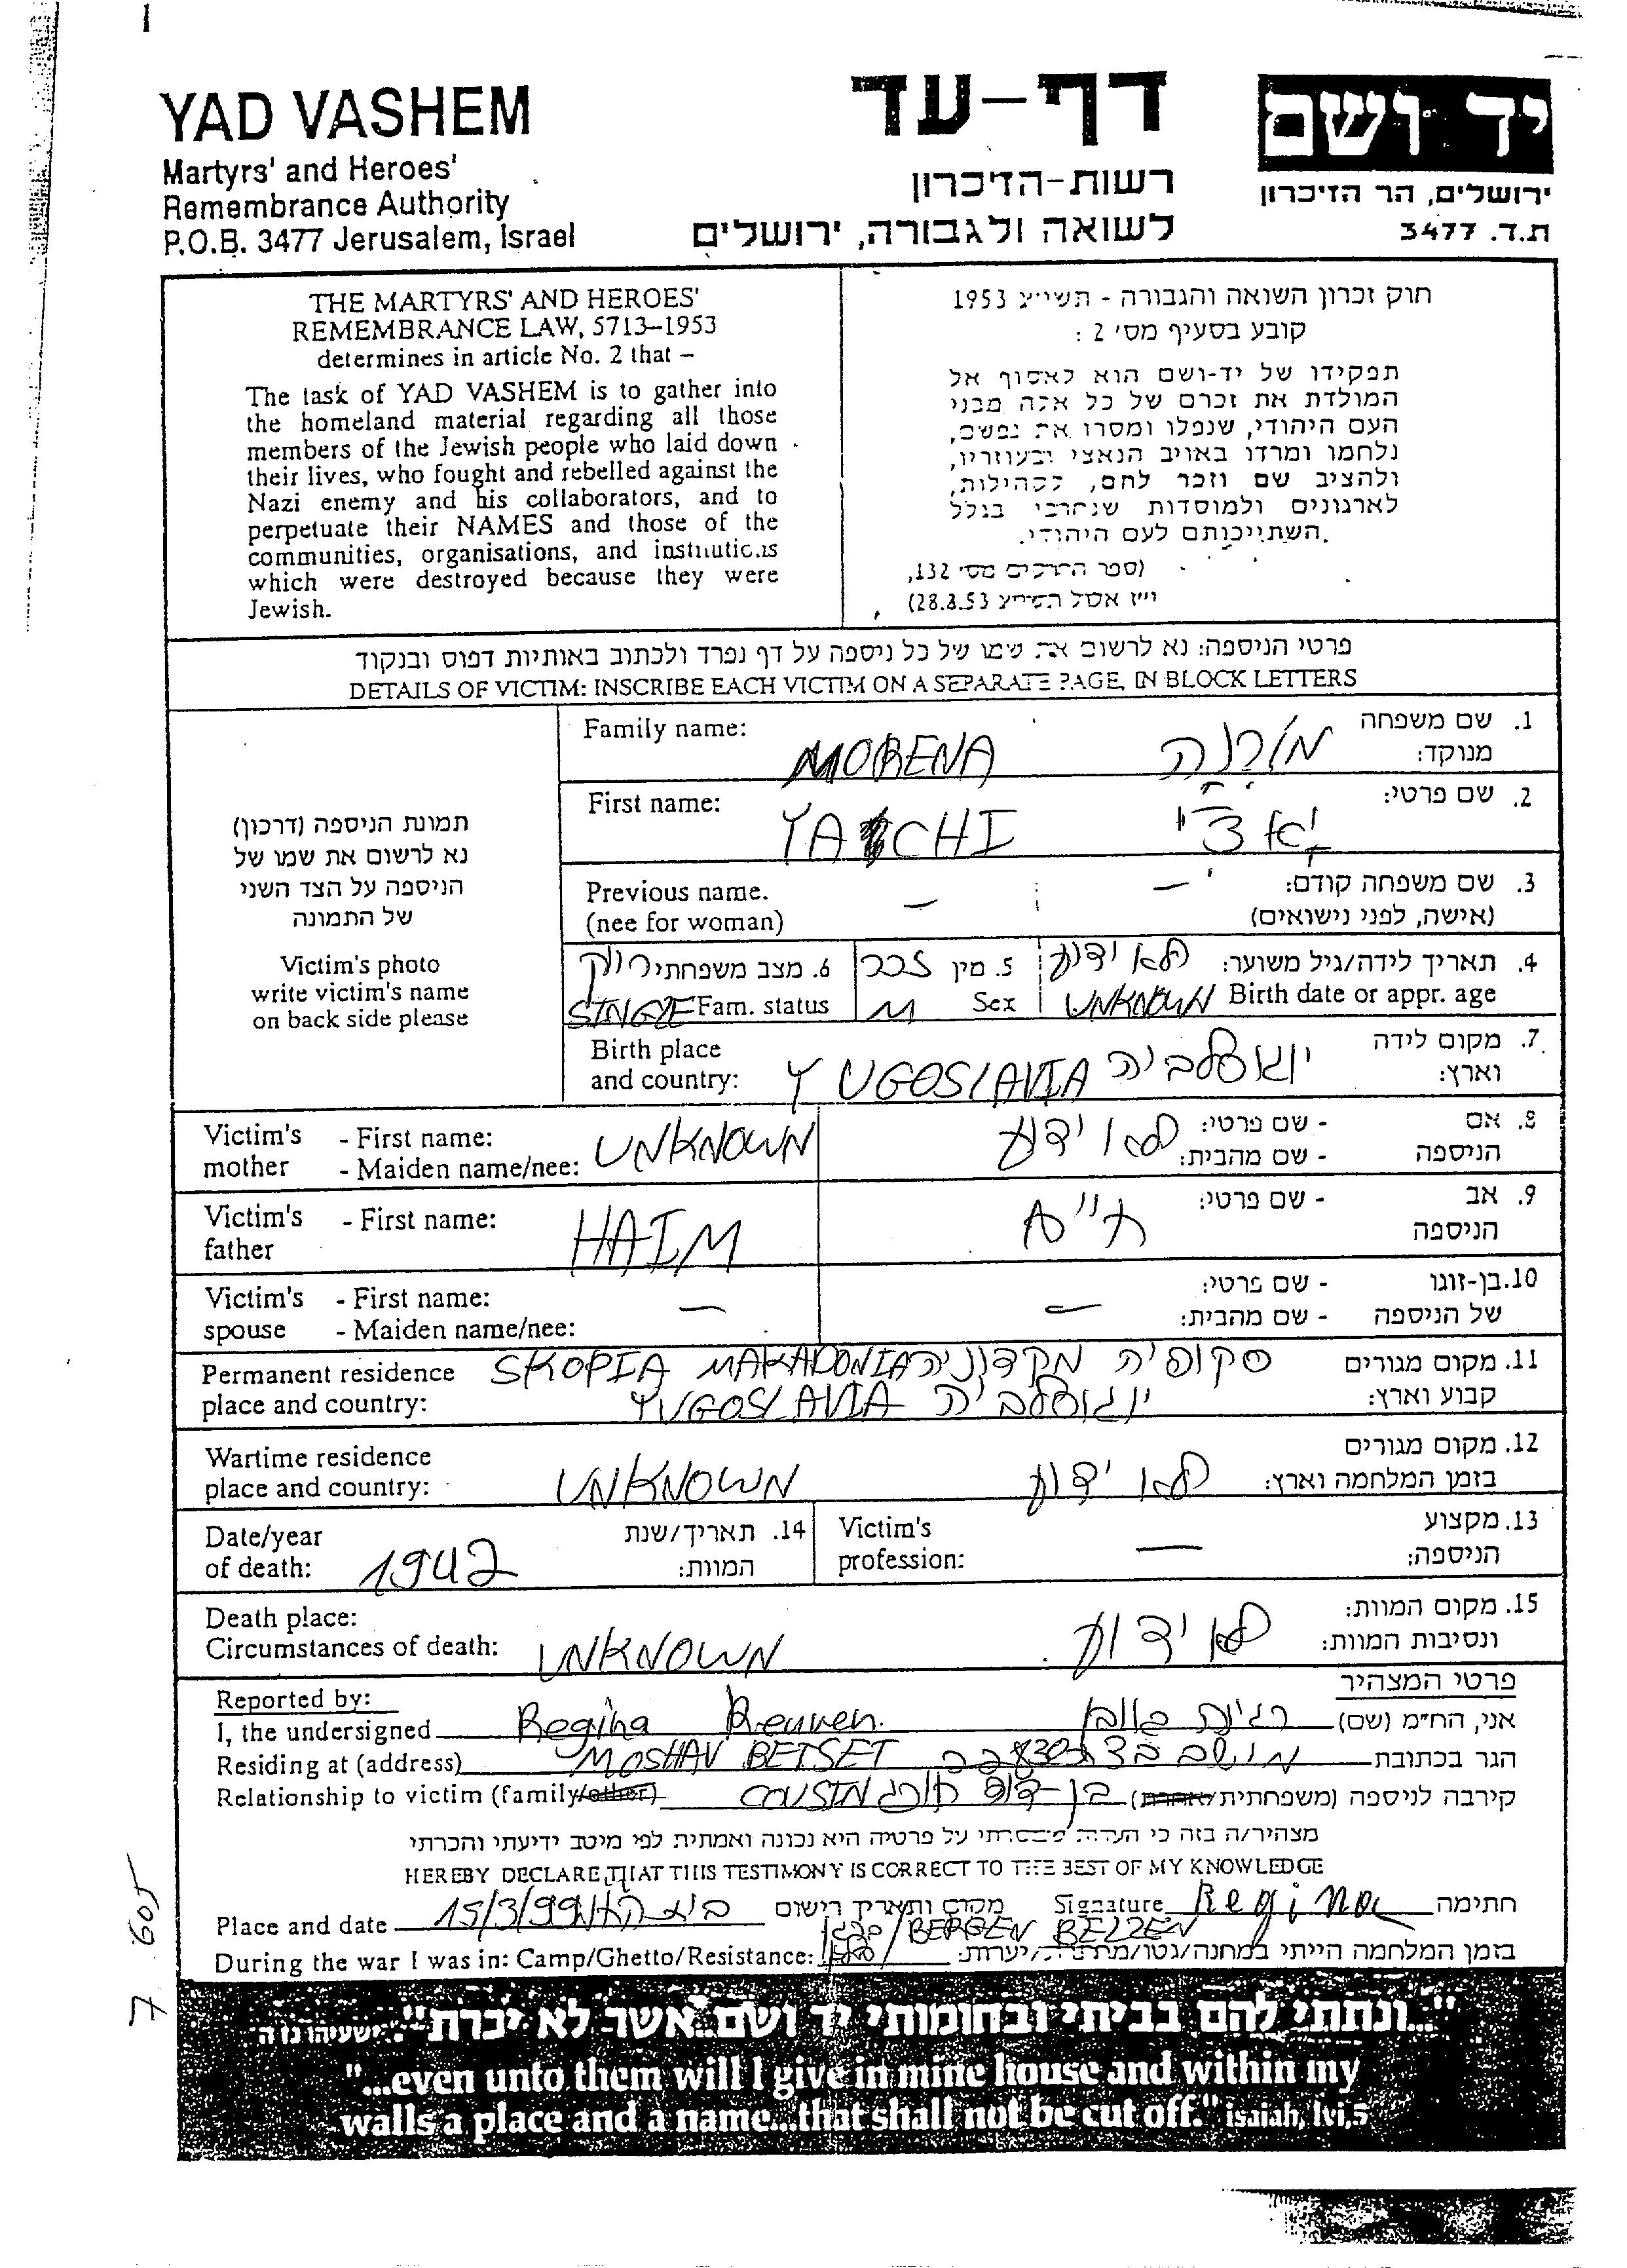 YAD VASHEM
Martyrs' and Heroes'
Remembrance Authority
P.O.B. 3477 Jerusalem, Israel
דף-עד
רשות-הזיכרון
לשואה ולגבורה, ירושלים
יד ושם
ירושלים, הר הזיכרון
ת.ד. 3477
THE MARTYRS' AND HEROES'
REMEMBRANCE LAW, 5713–1953
determines in article No. 2 that –
The task of YAD VASHEM is to gather into
the homeland material regarding all those
members of the Jewish people who laid down
their lives, who fought and rebelled against the
Nazi enemy and his collaborators, and to
perpetuate their NAMES and those of the
communities, organisations, and institutions
which were destroyed because they were
Jewish.
חוק זכרון השואה והגבורה - תשי"ג 1953
קובע בסעיף מס' 2 :
תפקידו של יד-ושם הוא לאסוף אל
המולדת את זכרם של כל אלה מבני
העם היהודי, שנפלו ומסרו את נפשם,
נלחמו ומרדו באויב הנאצי ובעוזריו,
ולהציב שם וזכר להם, לקהילות,
לארגונים ולמוסדות שנחרבו בגלל
השתייכותם לעם היהודי.
(ספר החוקים מס' 132,
י"ז אלול תשי"ג 28.8.53)
פרטי הניספה: נא לרשום את שמו של כל ניספה על דף נפרד ולכתוב באותיות דפוס ובנקוד
DETAILS OF VICTIM: INSCRIBE EACH VICTIM ON A SEPARATE PAGE, IN BLOCK LETTERS
תמונת הניספה (דרכון)
נא לרשום את שמו של
הניספה על הצד השני
של התמונה
Victim's photo
write victim's name
on back side please
Family name: MORENA מורנה 1. שם משפחה
מנוקד:
First name: YACHI יאצ'י 2. שם פרטי:
Previous name. – – 3. שם משפחה קודם:
(nee for woman) (אישה, לפני נישואים)
6. מצב משפחתי רווק 5. מין זכר 4. תאריך לידה/גיל משוער: לא ידוע
SINGLE Fam. status M Sex UNKNOWN Birth date or appr. age
Birth place
and country: YUGOSLAVIA יוגוסלביה 7. מקום לידה
וארץ:
Victim's - First name: UNKNOWN לא ידוע - שם פרטי: 8. אם
mother - Maiden name/nee: - שם מהבית: הניספה
Victim's - First name: HAIM חיים - שם פרטי: 9. אב
father הניספה
Victim's - First name: – – - שם פרטי: 10. בן-זוגו
spouse - Maiden name/nee: - שם מהבית: של הניספה
Permanent residence SKOPIA MAKADONIA סקופיה מקדוניה 11. מקום מגורים
place and country: YUGOSLAVIA יוגוסלביה קבוע וארץ:
Wartime residence 12. מקום מגורים
place and country: UNKNOWN לא ידוע בזמן המלחמה וארץ:
Date/year 14. תאריך/שנת Victim's 13. מקצוע
of death: 1942 המוות: profession: — הניספה:
Death place: 15. מקום המוות:
Circumstances of death: UNKNOWN לא ידוע ונסיבות המוות:
Reported by: פרטי המצהיר
I, the undersigned Regina Reuven. רגינה ראובן אני, הח"מ (שם)
Residing at (address) MOSHAV BETSET מושב בצת הגר בכתובת
Relationship to victim (family/other) COUSIN בן-דוד קירבה לניספה (משפחתית/אחרת)
מצהיר/ה בזה כי העדות שמסרתי על פרטיה היא נכונה ואמתית לפי מיטב ידיעתי והכרתי
HEREBY DECLARE THAT THIS TESTIMONY IS CORRECT TO THE BEST OF MY KNOWLEDGE
Place and date 15/3/99 מקום ותאריך רישום Signature Regina חתימה
BERGEN BELZEN
During the war I was in: Camp/Ghetto/Resistance: ברגן בלזן בזמן המלחמה הייתי במחנה/גטו/מחתרת/יערות:
"...ונתתי להם בביתי ובחומותי יד ושם...אשר לא יכרת". ישעיהו נו ה
"...even unto them will I give in mine house and within my
walls a place and a name...that shall not be cut off." isaiah, lvi,5
7 605